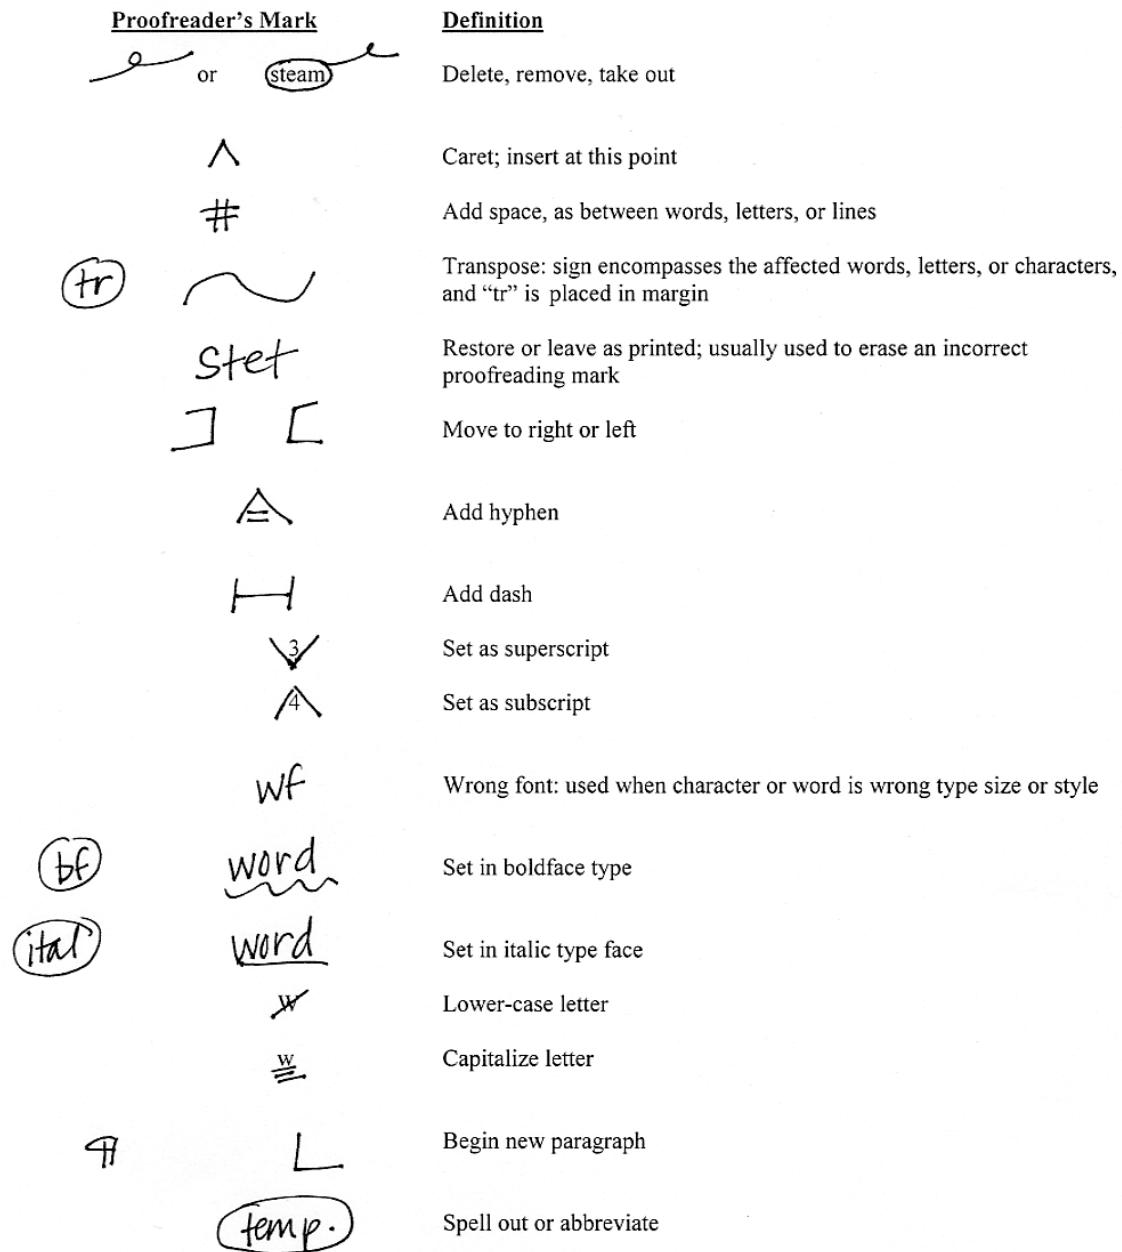 Proofreader's Mark Definition
or steam Delete, remove, take out
^ Caret; insert at this point
# Add space, as between words, letters, or lines
tr Transpose: sign encompasses the affected words, letters, or characters,
and “tr” is placed in margin
Stet Restore or leave as printed; usually used to erase an incorrect
proofreading mark
] [ Move to right or left
Add hyphen
Add dash
3 Set as superscript
4 Set as subscript
wf Wrong font: used when character or word is wrong type size or style
bf word Set in boldface type
ital word Set in italic type face
w Lower-case letter
w Capitalize letter
¶ L Begin new paragraph
temp. Spell out or abbreviate